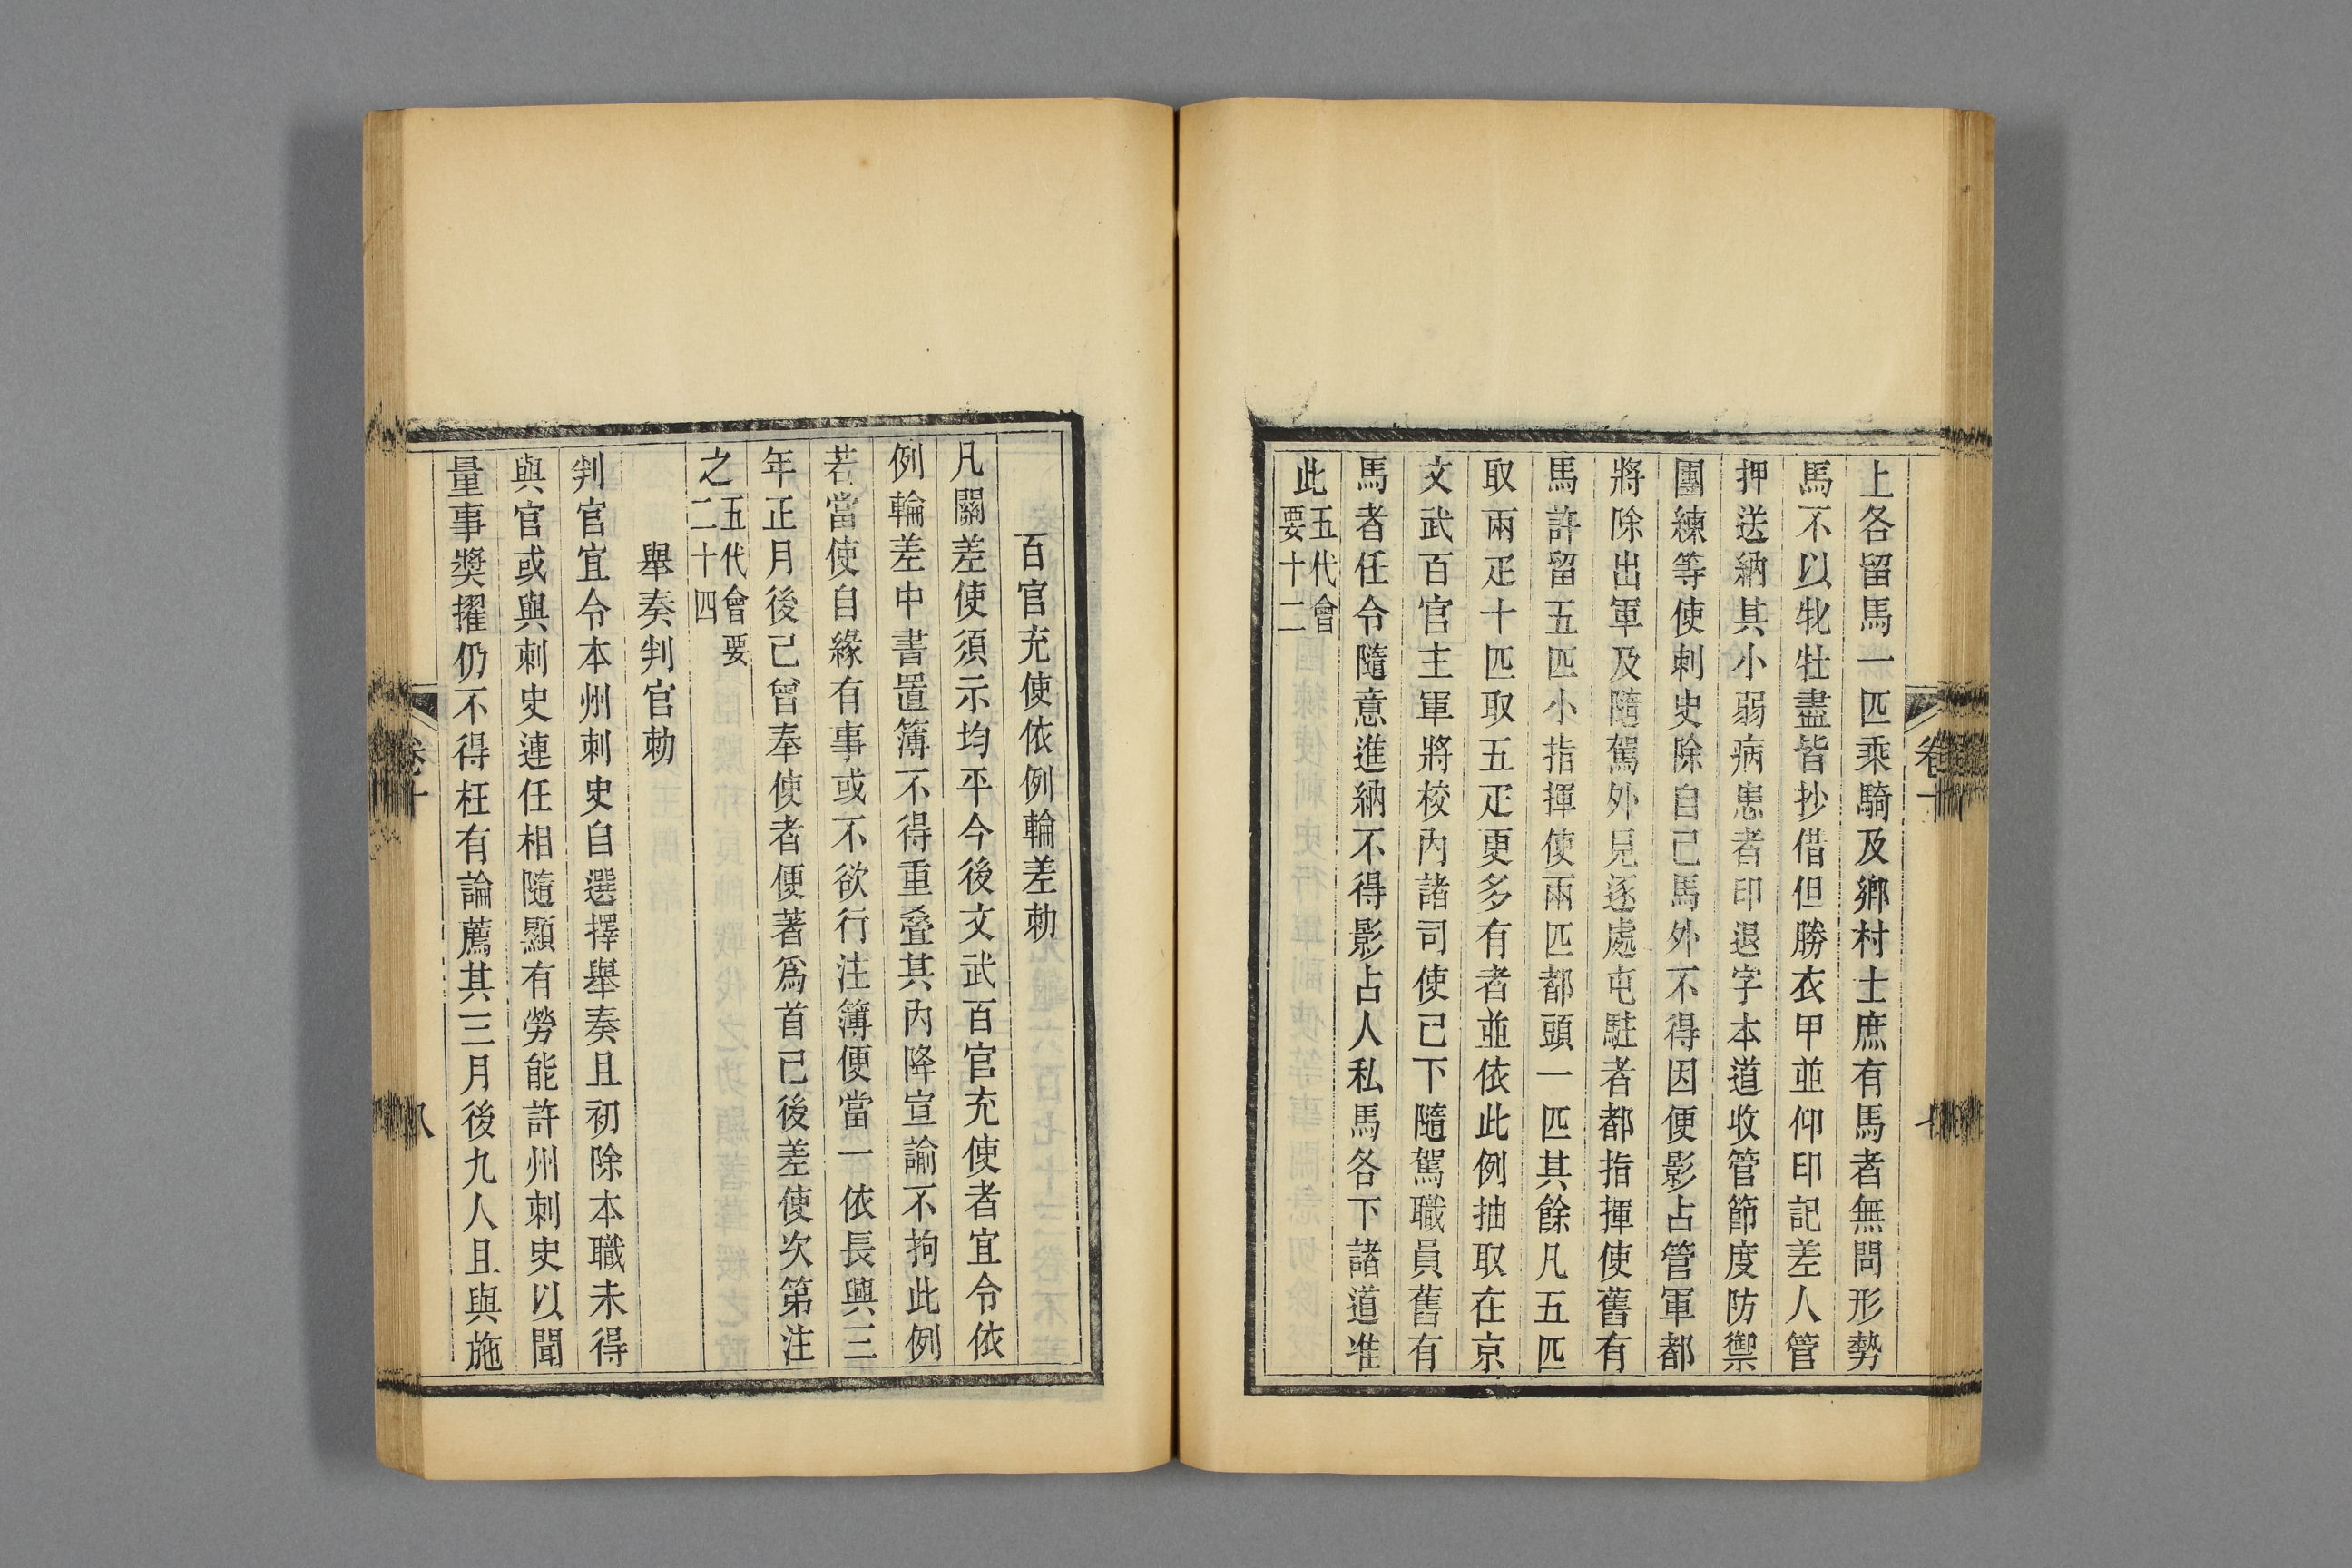 上各留馬一匹乘騎及鄉村士庶有馬者無問形勢
馬不以牝牡盡皆抄借但勝衣甲並仰印記差人管
押送納其小弱病患者印退字本道收管節度防禦
團練等使刺史除自己馬外不得因便影占管軍都
將除出軍及隨駕外見逐處屯駐者都指揮使舊有
馬許留五匹小指揮使兩匹都頭一匹其餘凡五匹
取兩疋十匹取五疋更多有者並依此例抽取在京
文武百官主軍將校內諸司使已下隨駕職員舊有
馬者任令隨意進納不得影占人私馬各下諸道准
此五代會
要十二
百官充使依例輪差勑
凡關差使須示均平今後文武百官充使者宜令依
例輪差中書置簿不得重疊其內降宣諭不拘此例
若當使自緣有事或不欲行注簿便當一依長興三
年正月後己曾奉使者便著爲首已後差使次第注
之五代會要
二十四
舉奏判官勑
判官宜令本州刺史自選擇舉奏且初除本職未得
與官或與刺史連任相隨顯有勞能許州刺史以聞
量事獎擢仍不得枉有論薦其三月後九人且與施
卷十
八